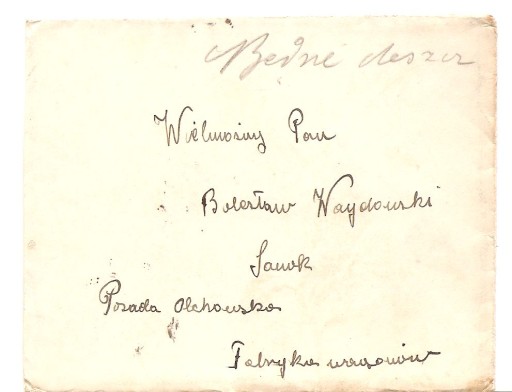 Wielmożny Pan
Bolesław Waydowski
Sanok
Posada Olchowska
Fabryka wagonów